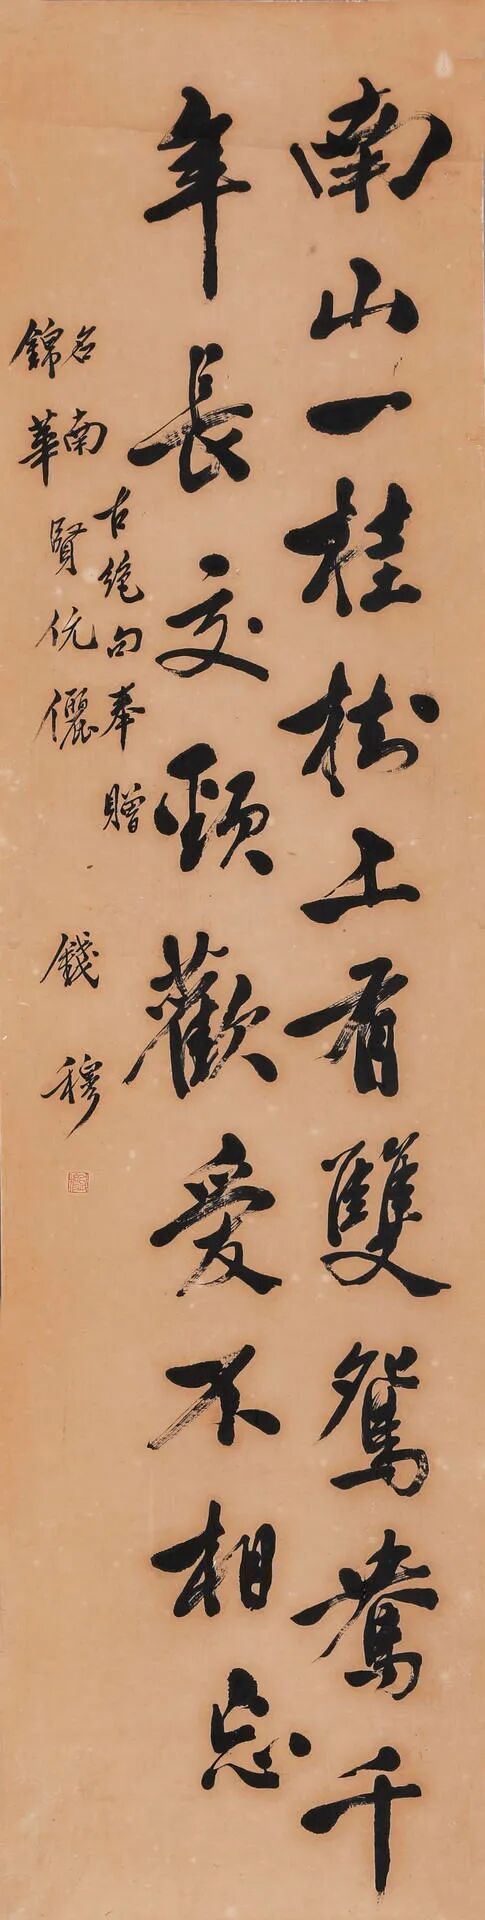 南山一桂樹上有雙鴛鴦千
年長交頸歡愛不相忘
古絶句奉贈
名南
錦華賢伉儷
錢穆